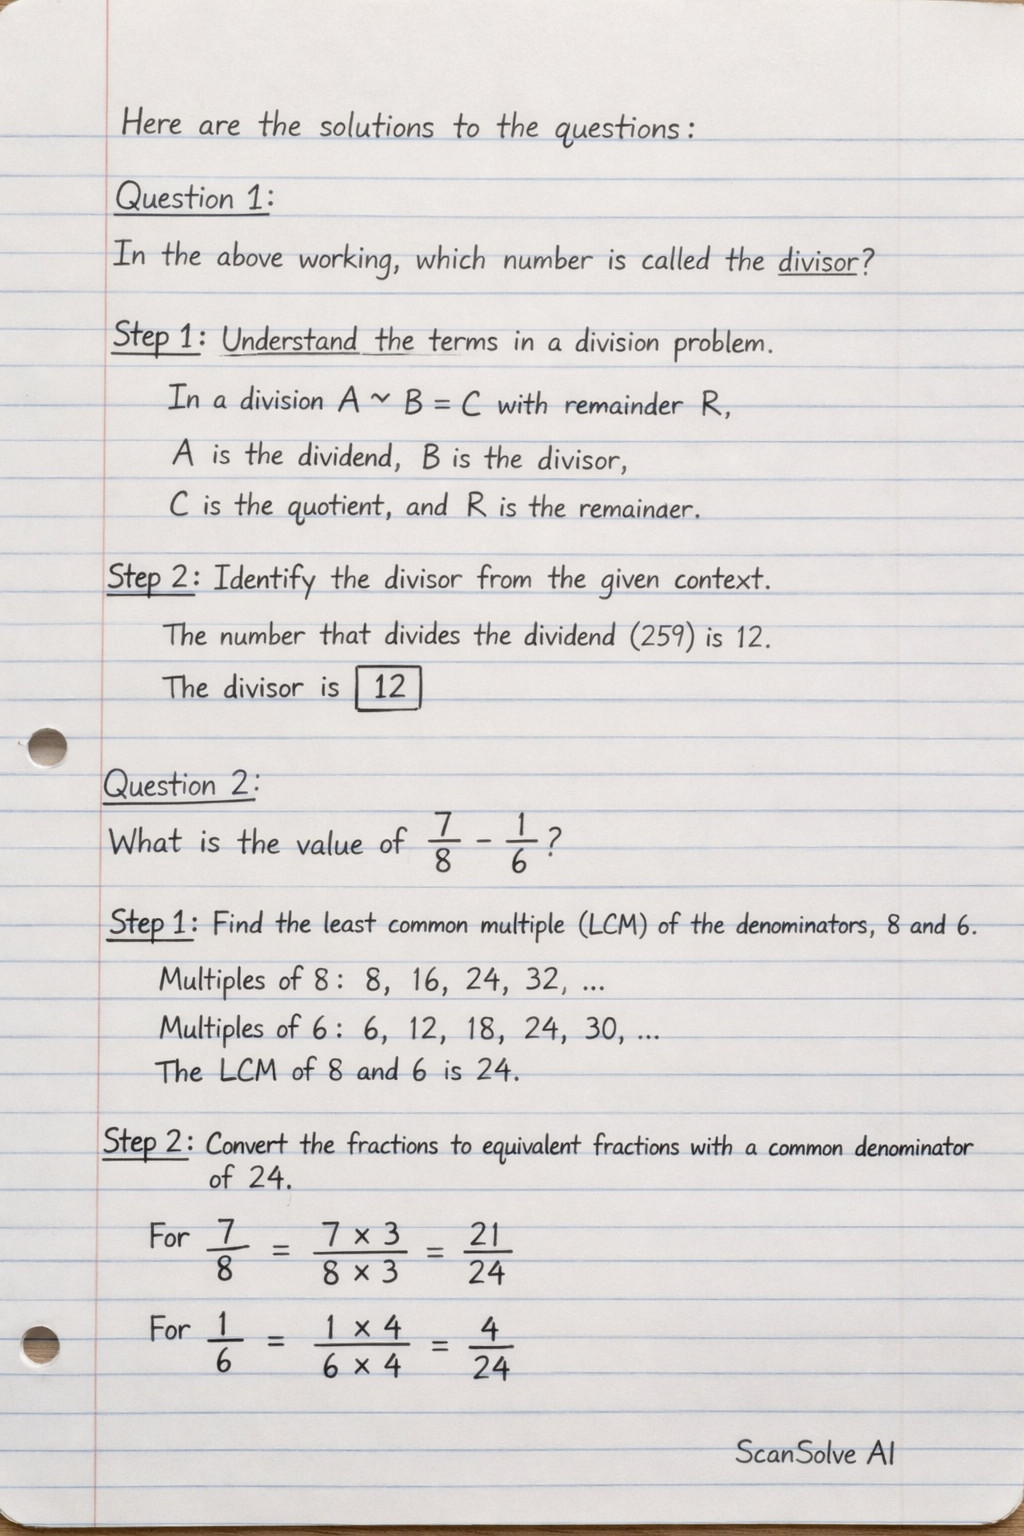 Here are the solutions to the questions:
Question 1:
In the above working, which number is called the divisor?
Step 1: Understand the terms in a division problem.
In a division A ~ B = C with remainder R,
A is the dividend, B is the divisor,
C is the quotient, and R is the remainder.
Step 2: Identify the divisor from the given context.
The number that divides the dividend (259) is 12.
The divisor is 12
Question 2:
What is the value of 7/8 - 1/6?
Step 1: Find the least common multiple (LCM) of the denominators, 8 and 6.
Multiples of 8: 8, 16, 24, 32, ...
Multiples of 6: 6, 12, 18, 24, 30, ...
The LCM of 8 and 6 is 24.
Step 2: Convert the fractions to equivalent fractions with a common denominator
of 24.
For 7/8 = 7 × 3/8 × 3 = 21/24
For 1/6 = 1 × 4/6 × 4 = 4/24
ScanSolve AI